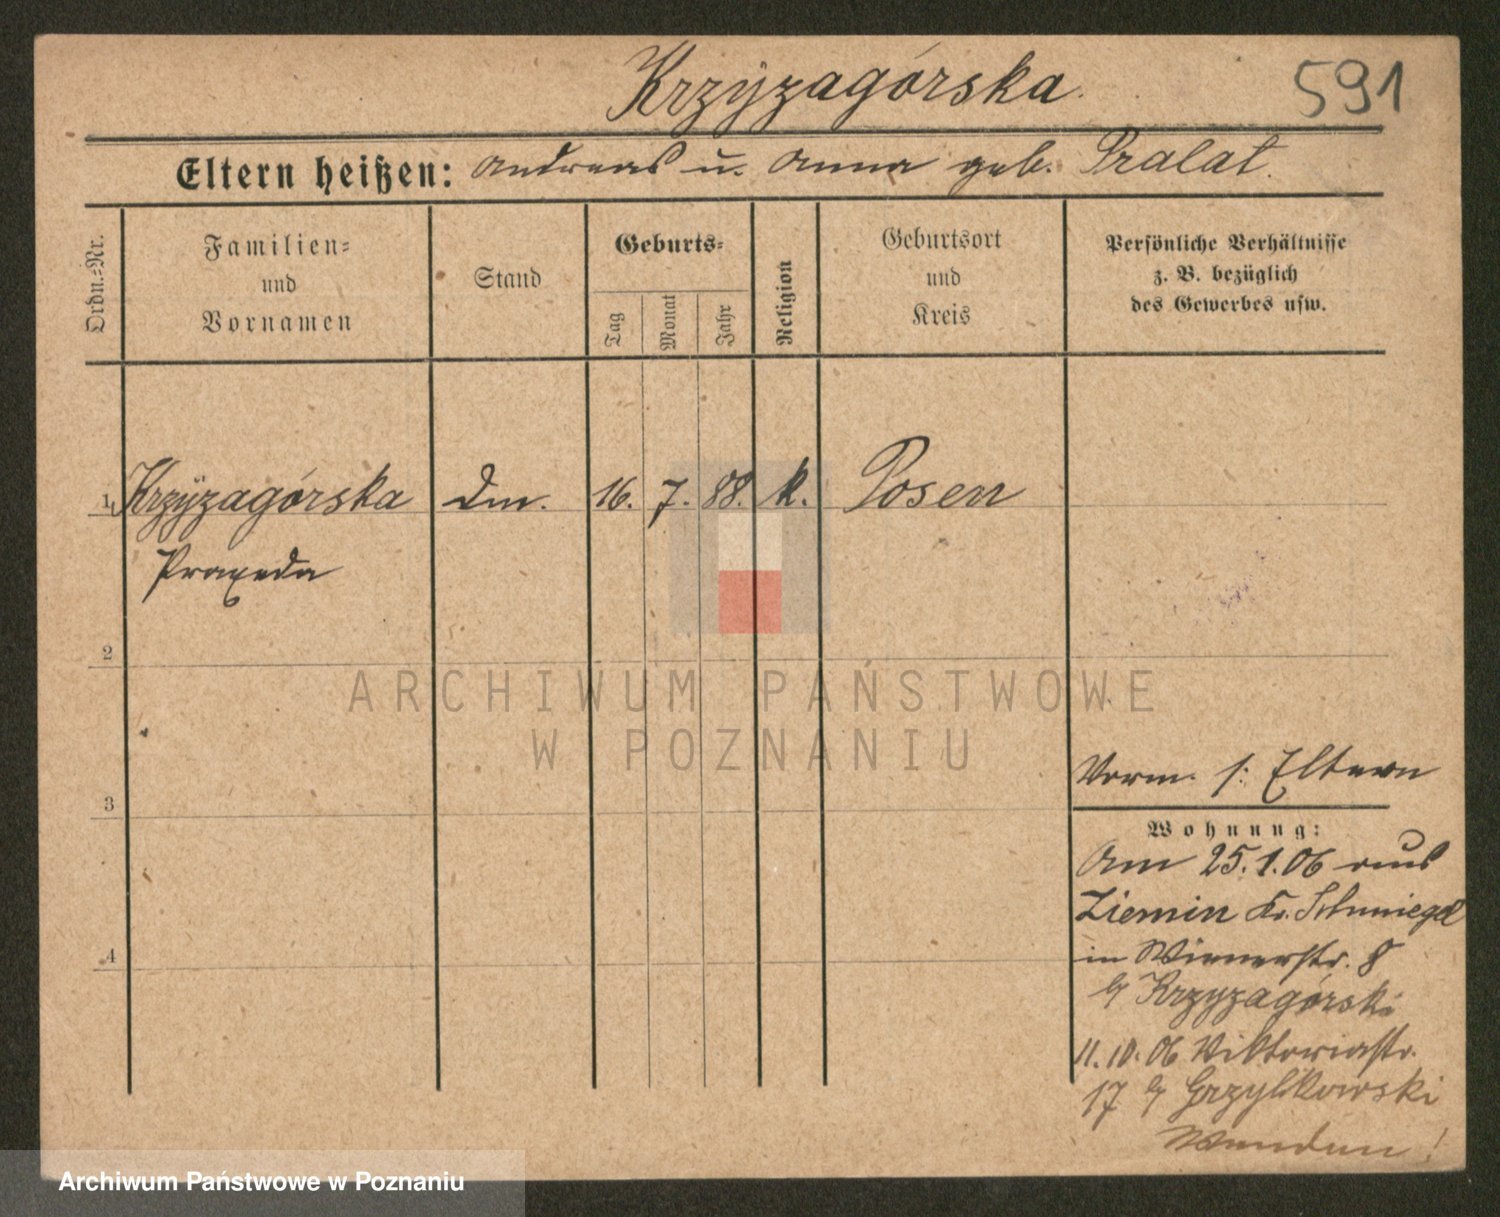 Krzyzagórska.
591
Eltern heißen: Andreas u. Anna geb. Pralat.
Ordn.-Nr.
Familien-
und
Vornamen
Stand
Geburts-
Tag
Monat
Jahr
Religion
Geburtsort
und
Kreis
Persönliche Verhältnisse
z. B. bezüglich
des Gewerbes usw.
1 Krzyzagórska Dm. 16. 7. 88. k. Posen
Praxeda
2
ARCHIWUM PAŃSTWOWE
W POZNANIU
Vorm. s: Eltern
3
Wohnung:
Am 25.1.06 aus
Ziemin Kr. Schmiegel
4
in Wienerstr. 8
b/ Krzyzagórski
11.10.06 Viktoriastr.
17 b/ Grzybkowski
Wenden!
Archiwum Państwowe w Poznaniu